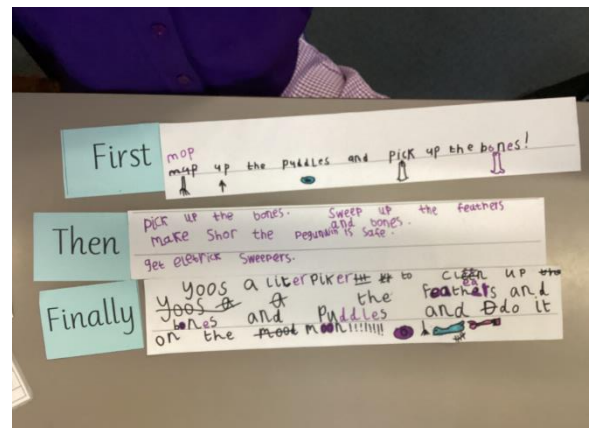 First
mop
mup up the puddles and pick up the bones!
Then
pick up the bones. Sweep up the feathers
and bones.
make Shor the is safe.
get eletrick Sweepers.
Finally
Yoos a liter piker to cleen up the
ea
Yoos a the feathers and
bones and Puddles and do it
on the mood moon!!!!!!!!